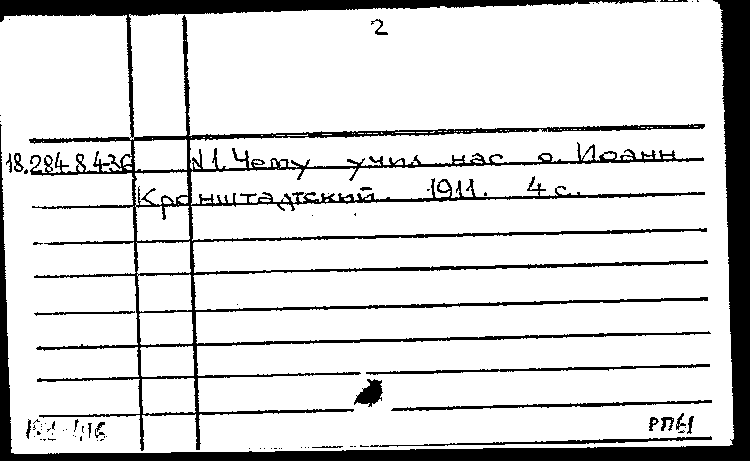 2
18.284.8.436. N1. Чему учил нас о. Иоанн
Кронштадтский. 1911. 4 с.
РП61